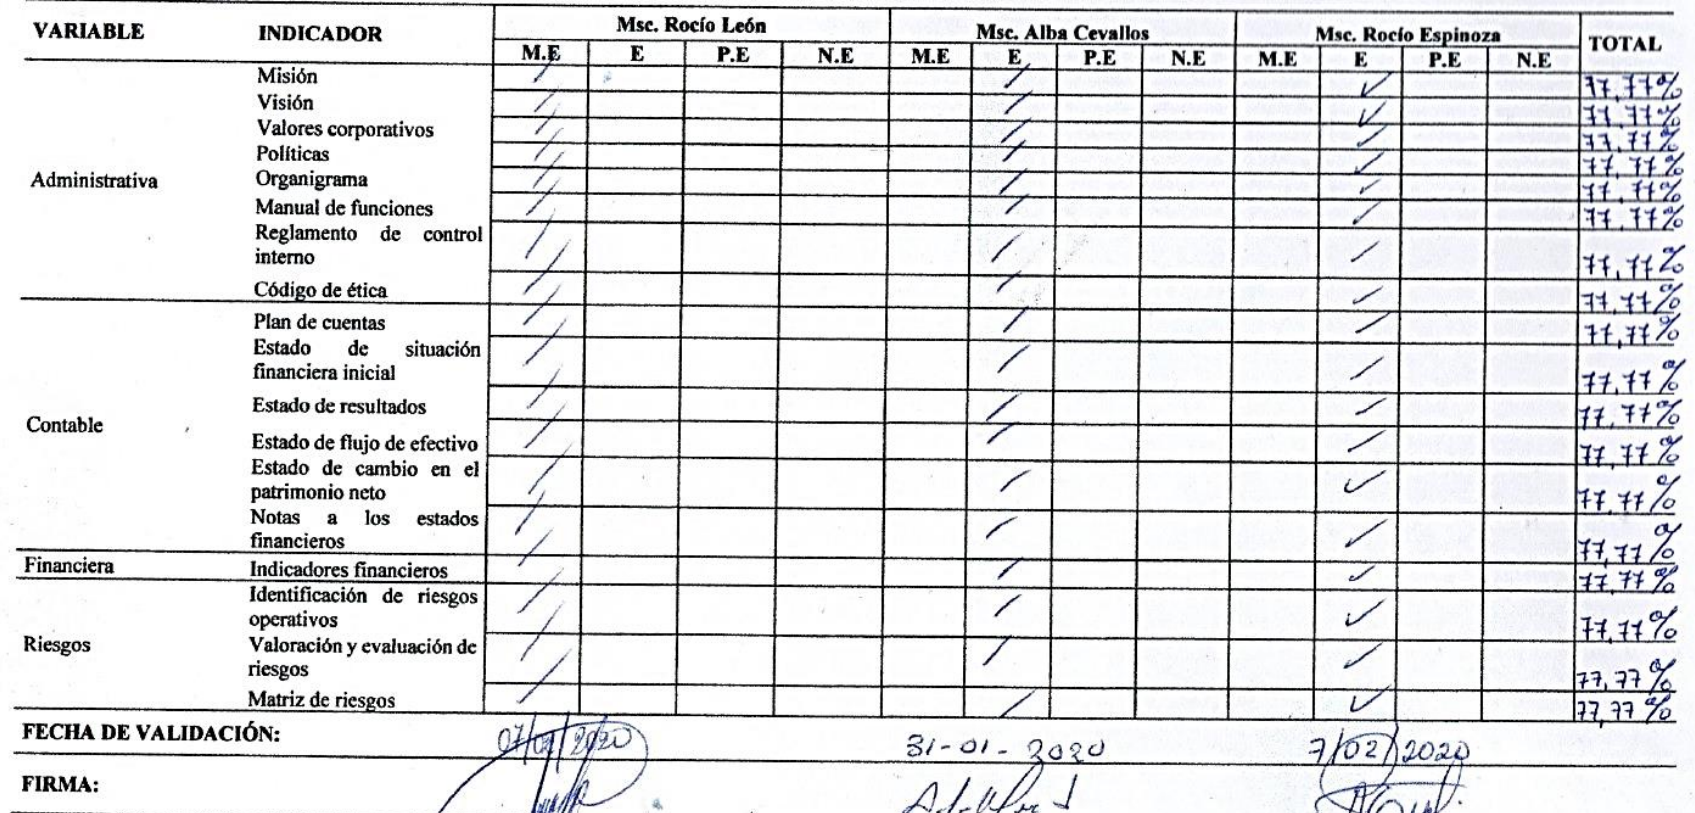 VARIABLE INDICADOR Msc. Rocío León Msc. Alba Cevallos Msc. Rocío Espinoza TOTAL
M.E E P.E N.E M.E E P.E N.E M.E E P.E N.E
Administrativa
Misión / / ✓ 77,77%
Visión / / ✓ 77,77%
Valores corporativos / / ✓ 77,77%
Políticas / / ✓ 77,77%
Organigrama / / ✓ 77,77%
Manual de funciones / / ✓ 77,77%
Reglamento de control
interno / / ✓ 77,77%
Código de ética / / ✓ 77,77%
Contable
Plan de cuentas / / ✓ 77,77%
Estado de situación
financiera inicial / / ✓ 77,77%
Estado de resultados / / ✓ 77,77%
Estado de flujo de efectivo / / ✓ 77,77%
Estado de cambio en el
patrimonio neto / / ✓ 77,77%
Notas a los estados
financieros / / ✓ 77,77%
Financiera Indicadores financieros / / ✓ 77,77%
Riesgos
Identificación de riesgos
operativos / / ✓ 77,77%
Valoración y evaluación de
riesgos / / ✓ 77,77%
Matriz de riesgos / / ✓ 77,77%
FECHA DE VALIDACIÓN: 07/02/2020 31-01-2020 7/02/2020
FIRMA: